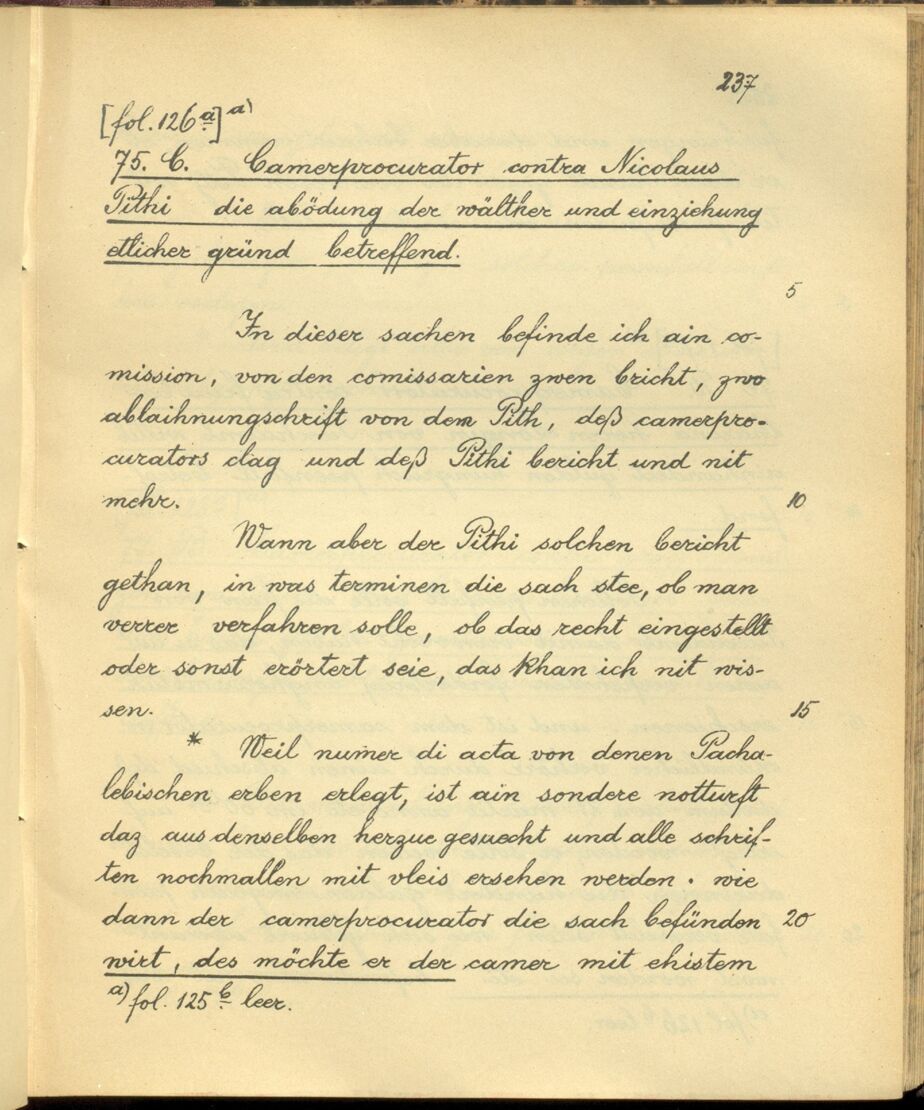 237
[fol. 126 a] a)
75. C. Camerprocurator contra Nicolaus
Pithi die abödung der wälther und einziehung
etlicher gründ betreffend.
5
In dieser sachen befinde ich ain co-
mission, von den comissarien zwen bricht, zwo
ablaihnungschrift von dem Pith, deß camerpro-
curators clag und deß Pithi bericht und nit
mehr. 10
Wann aber der Pithi solchen bericht
gethan, in was terminen die sach stee, ob man
verrer verfahren solle, ob das recht eingestellt
oder sonst erörtert seie, das khan ich nit wis-
sen. 15
* Weil numer di acta von denen Pacha-
lebischen erben erlegt, ist ain sondere notturft
daz aus denselben herzue gesuecht und alle schrif-
ten nochmallen mit vleis ersehen werden. wie
dann der camerprocurator die sach befünden 20
wirt, des möchte er der camer mit ehistem
a) fol. 125 b leer.